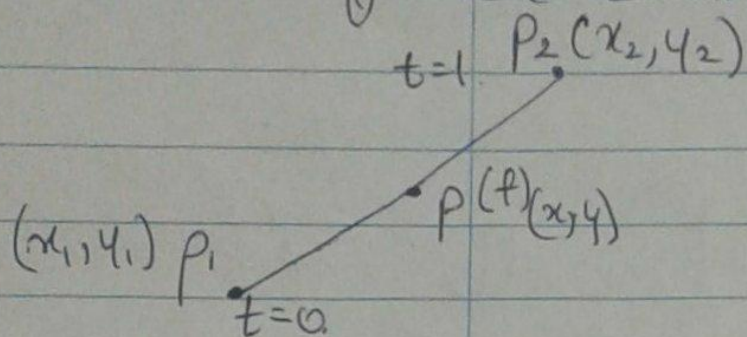 t=1 P2 (x2, y2)
P(t) (x, y)
(x1, y1) P1
t=0